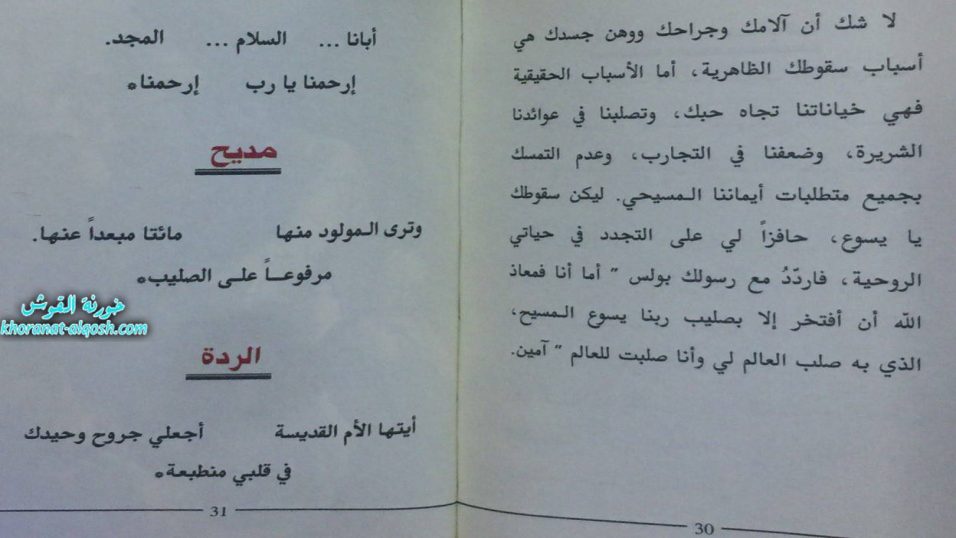 لا شك أن آلامك وجراحك ووهن جسدك هي
أسباب سقوطك الظاهرية، أما الأسباب الحقيقية
فهي خياناتنا تجاه حبك، وتصلبنا في عوائدنا
الشريرة، وضعفنا في التجارب، وعدم التمسك
بجميع متطلبات أيماننا المسيحي. ليكن سقوطك
يا يسوع، حافزاً لي على التجدد في حياتي
الروحية، فاردّدُ مع رسولك بولس " أما أنا فمعاذ
الله أن أفتخر إلا بصليب ربنا يسوع المسيح،
الذي به صلب العالم لي وأنا صلبت للعالم " آمين.
30
أبانا ... السلام ... المجد.
إرحمنا يا رب إرحمنا*
مديح
وترى المولود منها مائتا مبعداً عنها.
مرفوعاً على الصليب*
الردة
أيتها الأم القديسة أجعلي جروح وحيدك
في قلبي منطبعة*
31
خورنة القوش
khoranat-alqosh.com